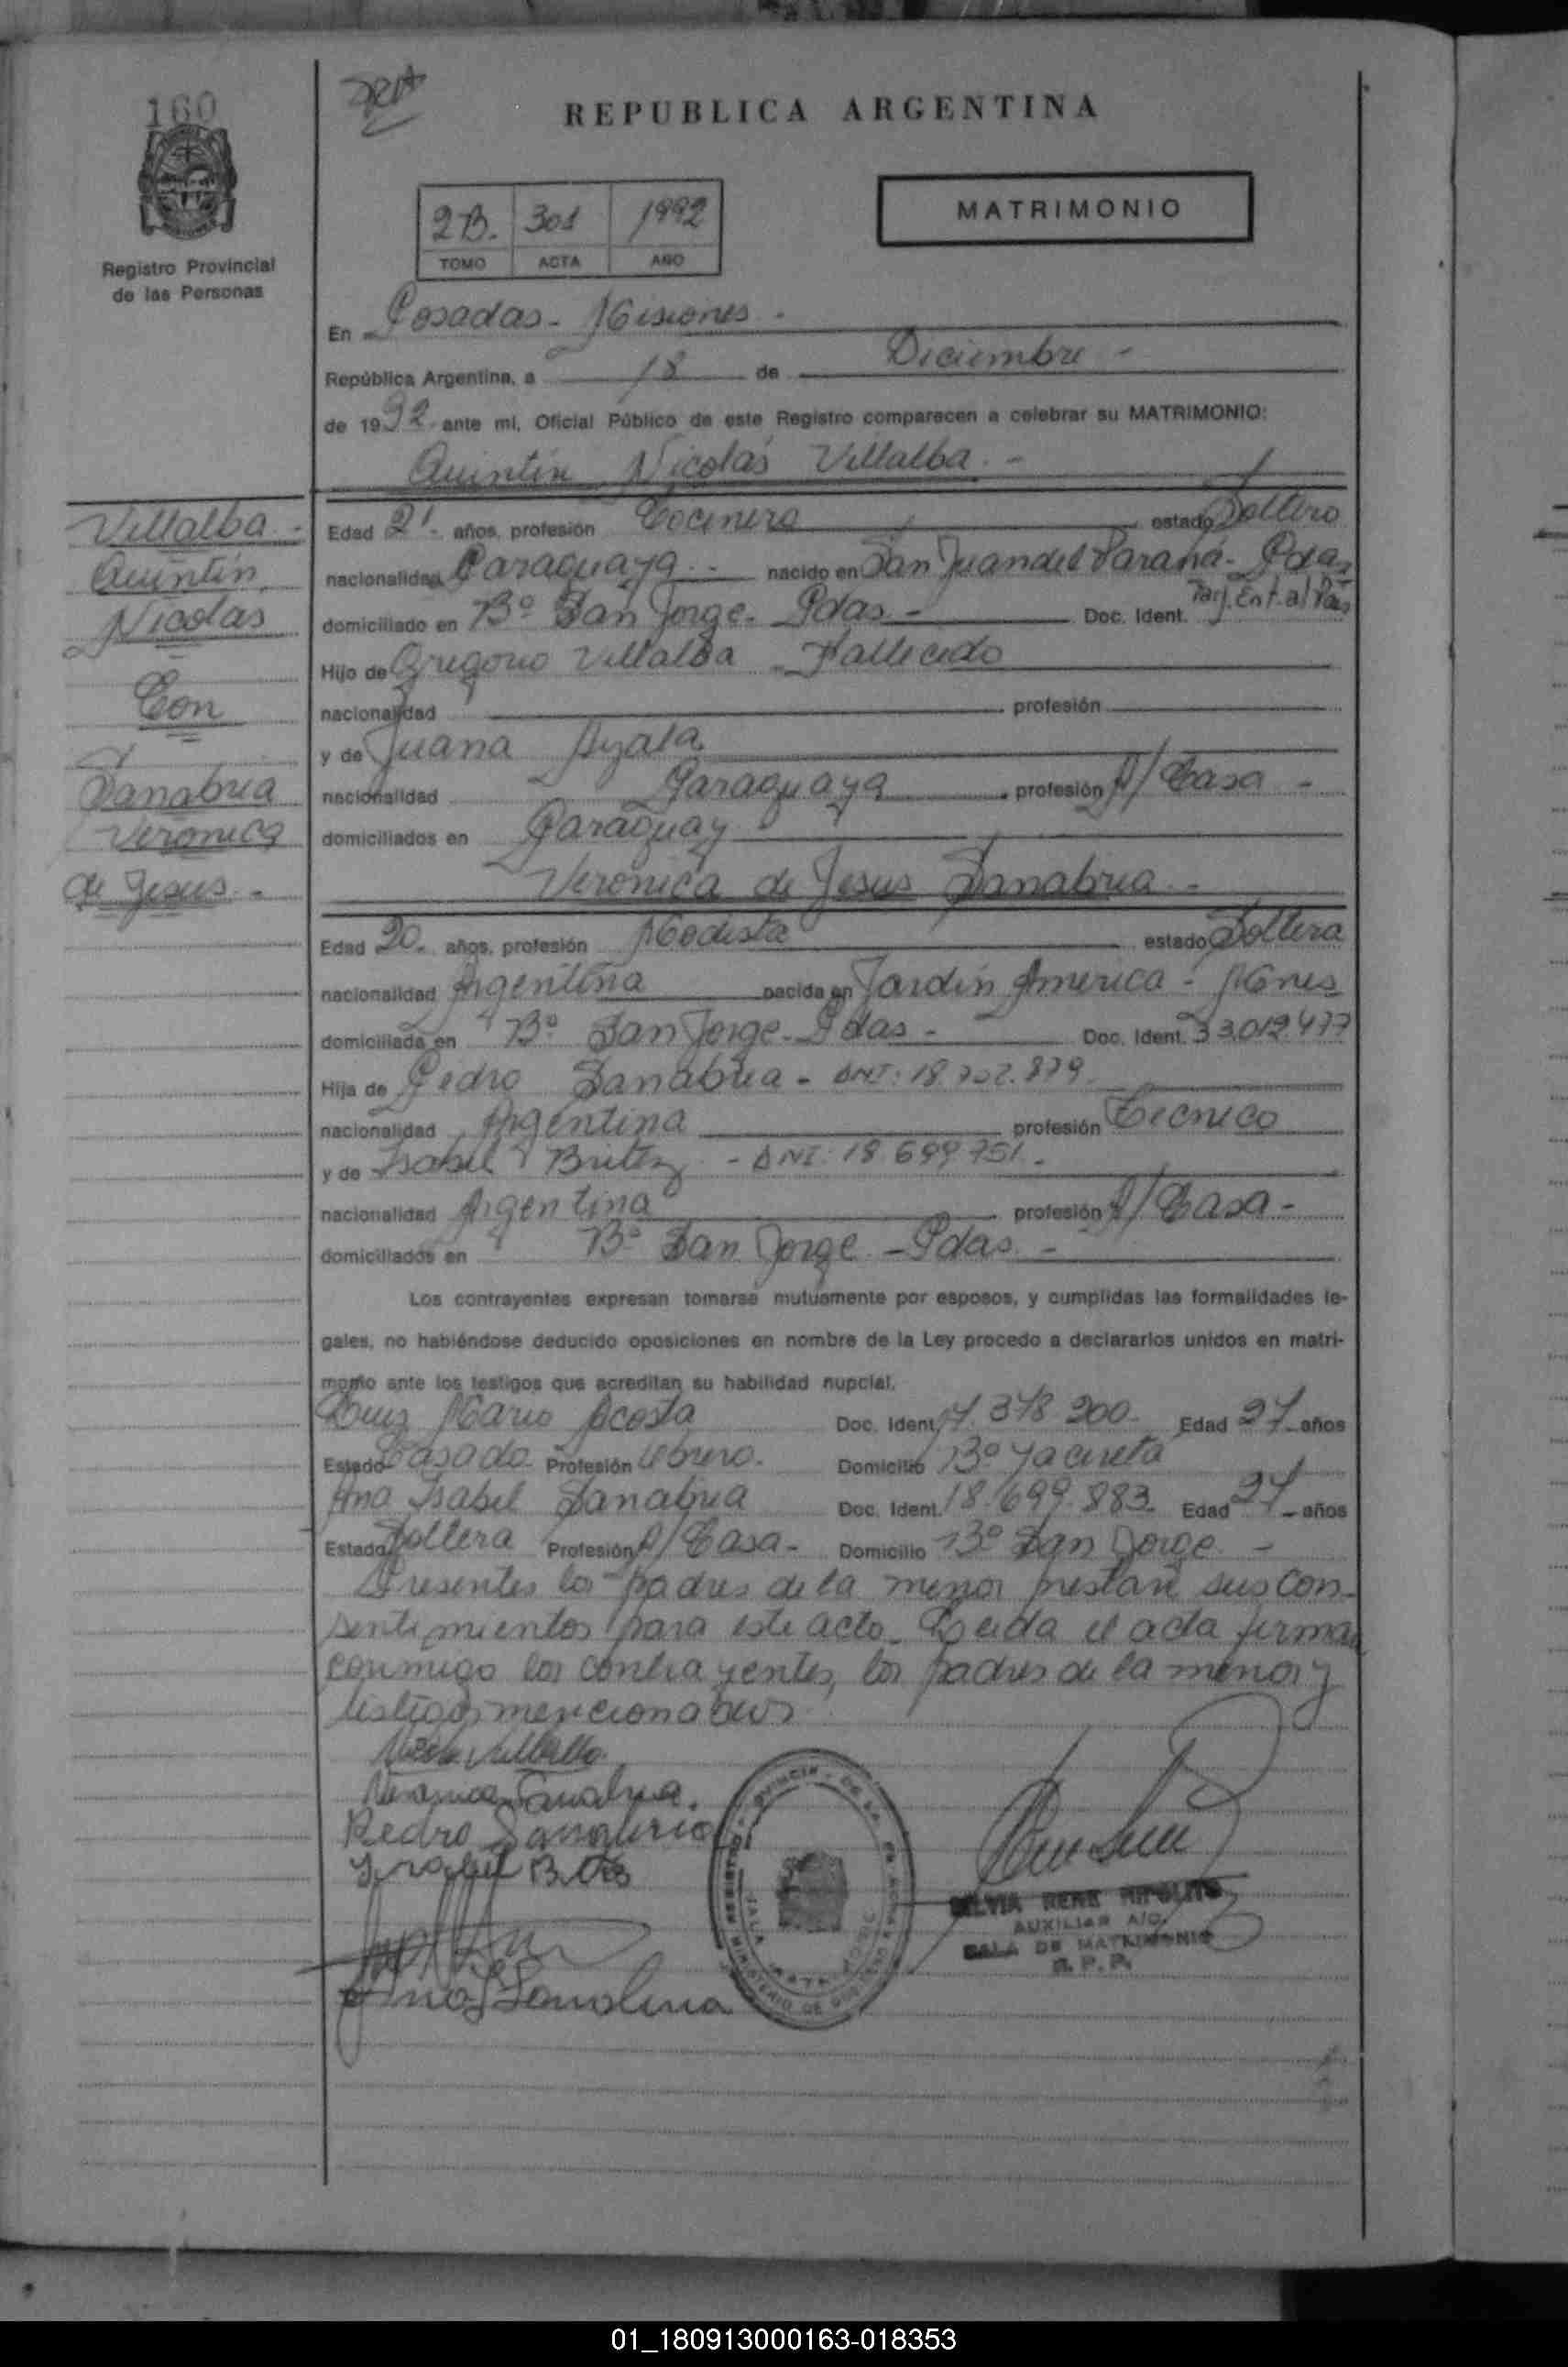 160
REPUBLICA ARGENTINA
2B. 301 1992
TOMO ACTA AÑO
MATRIMONIO
Registro Provincial
de las Personas
En Posadas - Misiones -
República Argentina, a 18 de Diciembre -
de 1992 ante mi, Oficial Público de este Registro comparecen a celebrar su MATRIMONIO:
Quintin Nicolás Villalba. -
Villalba -
Quintin
Nicolas
Con
Sanabria
Veronica
de Jesus -
Edad 21 - años, profesión Cocinero estado Soltero
nacionalidad Paraguaya - nacido en San Juan del Paraná - Pdas
domiciliado en Bº San Jorge - Pdas - Doc. Ident. Tarj. Ent. al País
Hijo de Gregorio Villalba - Fallecido
nacionalidad profesión
y de Juana Ayala
nacionalidad Paraguaya profesión A/ Casa -
domiciliados en Paraguay
Veronica de Jesus Sanabria -
Edad 20 - años, profesión Modista estado Soltera
nacionalidad Argentina nacida en Jardin America - Mnes
domiciliada en Bº San Jorge - Pdas - Doc. Ident. 33.012.477
Hija de Pedro Sanabria - DNI: 18.702.879
nacionalidad Argentina profesión Tecnico
y de Isabel Britez - DNI: 18.699.751 -
nacionalidad Argentina profesión A/ Casa -
domiciliados en Bº San Jorge - Pdas -
Los contrayentes expresan tomarse mutuamente por esposos, y cumplidas las formalidades le-
gales, no habiéndose deducido oposiciones en nombre de la Ley procedo a declararlos unidos en matri-
monio ante los testigos que acreditan su habilidad nupcial.
Luis Mario Acosta Doc. Ident. 17.378.200 - Edad 27 años
Estado Casado Profesión Obrero. Domicilio Bº Yacireta
Ana Isabel Sanabria Doc. Ident. 18.699.883 Edad 27 años
Estado Soltera Profesión A/ Casa - Domicilio Bº San Jorge -
Presentes los padres de la menor prestan sus con-
sentimientos para este acto - Leida el acta firman
conmigo los contrayentes, los padres de la menor y
testigos mencionados
Veronica Sanabria.
Pedro Sanabria
Ana I Sanabria
SILVIA RENE HIPOLITO
AUXILIAR A/C
SALA DE MATRIMONIO
R. P. P.
01_180913000163-018353